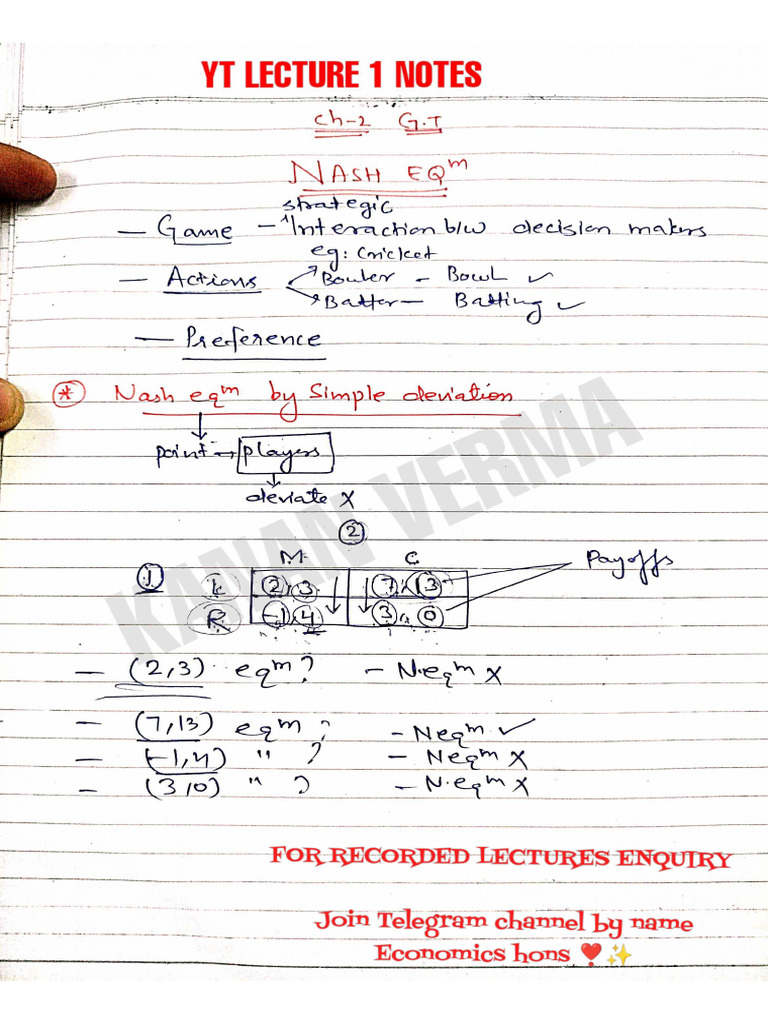 YT LECTURE 1 NOTES
Ch-2 G.T
NASH EQᵐ
strategic
— Game — Interaction b/w decision makers
eg: Cricket
— Actions Bowler — Bowl ✓
Batter — Batting ✓
— Preference
* Nash eqᵐ by Simple deviation
point → players
deviate X
②
M C Payoffs
① L 2, 3 7, 13
R -1, 4 3, 0
— (2,3) eqᵐ? — N.eqᵐ X
— (7,13) eqᵐ ? — Neqᵐ ✓
— (-1,4) " ? — Neqᵐ X
— (3,0) " ? — N.eqᵐ X
KANAN VERMA
FOR RECORDED LECTURES ENQUIRY
Join Telegram channel by name
Economics hons ❣️✨